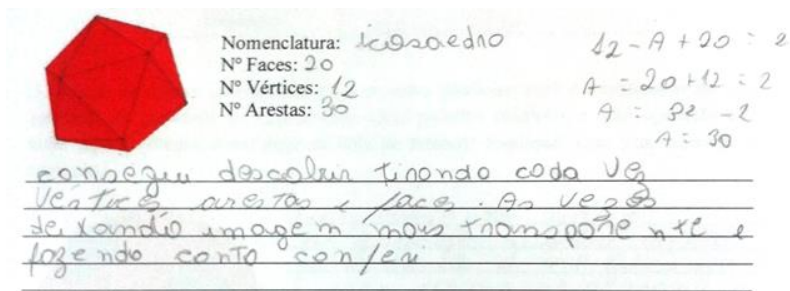 Nomenclatura: icosaedro
Nº Faces: 20
Nº Vértices: 12
Nº Arestas: 30
12 - A + 20 = 2
A = 20 + 12 = 2
A = 32 - 2
A = 30
consegui descobrir tirando coda vez
vértices arestas e faces. As vezes
deixando imagem mais transparente e
fozendo conto